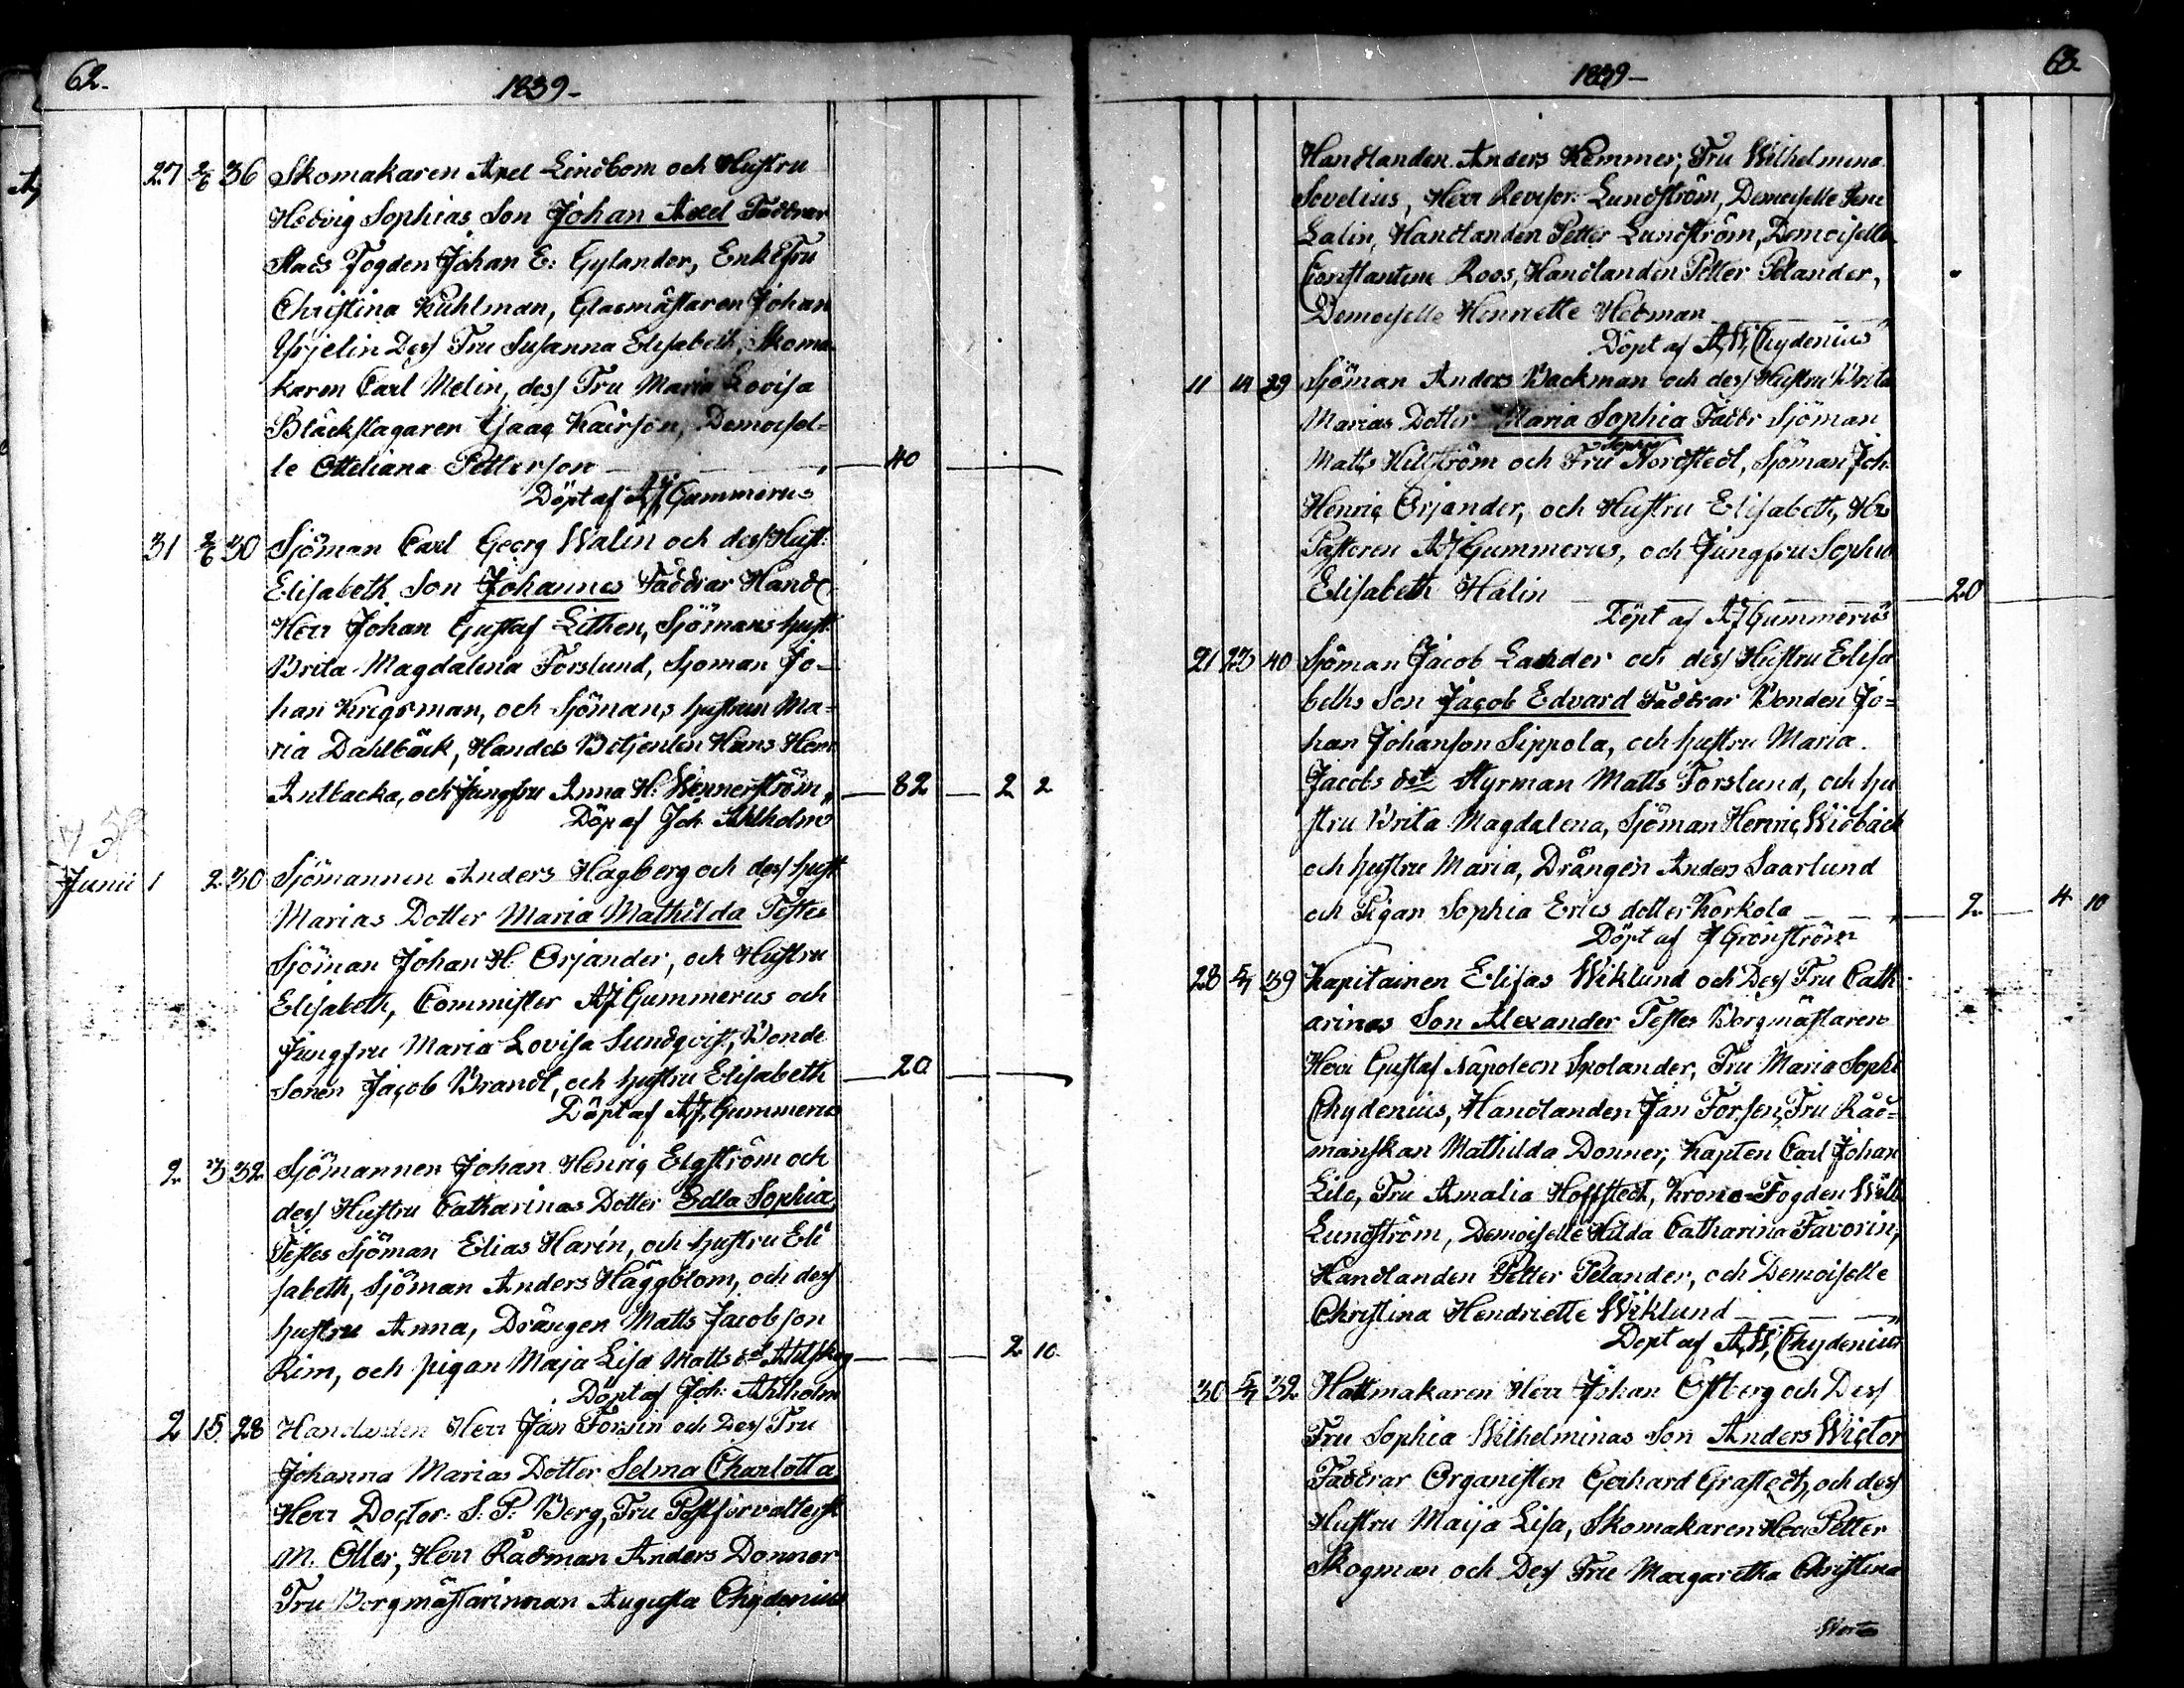 62.
1839-
27 2/6 36 Skomakaren Axel Lindbom och Hustru
Hedvig Sophias Son Johan Axel Faddrar
Stads Fogden Johan E: Gylander, EnkeFru
Christina Kuhlman, Glasmästaren Johan
Yrjelin Dess Fru Susanna Elisabeth, Skoma-
karen Carl Melin, dess Fru Maria Lovisa
Bläckslagaren Isaac Kairson, Demoisel-
le Otteliana Petterson 40
Döpt af AJ Gummerus
31 2/6 30 Sjöman Carl Georg Walin och dess Hust:
Elisabeth Son Johannes Faddrar Handl.
Herr Johan Gustaf Lithen, Sjömans hust:
Brita Magdalena Forslund, Sjöman Jo-
han Krigsman, och Sjömans hustrun Ma-
ria Dahlbäck, Handels Betjenten Hans Hen
Antbacka, och Jungfru Anna H: Wennerström 82 2 2
Döp af Joh Ahlholm
Junii 1 2 30 Sjömannen Anders Hagberg och dess hust
Marias Dotter Maria Mathilda Testes
Sjöman Johan H: Orjander, och Hustru
Elisabeth, Comminister AJ Gummerus och
Jungfru Maria Lovisa Sundqvist, Bonde
Sonen Jacob Brandt, och hustru Elisabeth 20
Döpt af AJ, Gummerus
2 3 32 Sjömannen Johan Henric Elgström och
dess Hustru Catharinas Dotter Edla Sophia,
Testes Sjöman Elias Harin, och hustru Eli
sabeth, Sjöman Anders Häggblom, och dess
hustru Anna, Drängen Matts Jacobson
Rim, och pigan Maja Lisa Matts dr 2 10
Döpt af Joh: Ahlholm
2 15 28 Handlanden Herr Jan Forsén och Dess Fru
Johanna Marias Dotter Selma Charlotta
Herr Doctor: S: P: Berg, Fru Postförvaltersk
M. Öller, Herr Rådman Anders Donner
Fru Borgmästarinnan Augusta Chydenius
1839-
63.
Handlanden Anders Kemmer, Fru Wilhelmina
Sovelius, Herr Revisor: Lundström, Demoiselle
Lalin, Handlanden Petter Lundström, Demoiselle
Constantine Roos, Handlanden Petter Pelander,
Demoiselle Henriette Hedman
Döpt af A,W, Chydenius
11 14 29 Sjöman Anders Backman och dess Hustru Brita
Marias Dotter Maria Sophia Faddr Sjöman
Sophia
Matts Hellström och Fru Nordstedt, Sjöman Joh
Henric Orjander, och Hustru Elisabeth, Her
Pastoren AJ Gummerus, och Jungfru Sophia
Elisabeth Halin 20
Döpt af AJ Gummerus
21 23 40 Sjöman Jacob Lander och dess Hustru Elisa
beths Son Jacob Edvard Faddrar Bonden Jo-
han Johanson Sippola, och hustru Maria
Jacobs dotr Styrman Matts Forslund, och hu
stru Brita Magdalena, Sjöman Henric Widbäck
och hustru Maria, Drängen Anders Saarlund
och Pigan Sophia Erics dotter Korkola 2 4 10
Döpt af J Grönström
28 5/7 39 Kapitainen Elisas Wiklund och Dess Fru Cath
arinas Son Alexander Testes Borgmästaren
Herr Gustaf Napoleon Spolander, Fru Maria Sophi
Chydenius, Handlanden Jan Forsén, Fru Råd-
manskan Mathilda Donner, Kapten Carl Johan
Lile, Fru Amalia Hoffstedt, Krono-Fogden Wilh
Lundström, Demoiselle Hilda Catharina Favorin,
Handlanden Petter Pelander, och Demoiselle
Christina Hendriette Wiklund
Döpt af A,W, Chydenius
30 5/7 32 Hattmakaren Herr Johan Östberg och Dess
Fru Sophia Wilhelminas Son Anders Wictor
Faddrar Organisten Gerhard Grastedt, och dess
Hustru Maija Lisa, Skomakaren Herr Petter
Skogman och Dess Fru Margaretha Christina